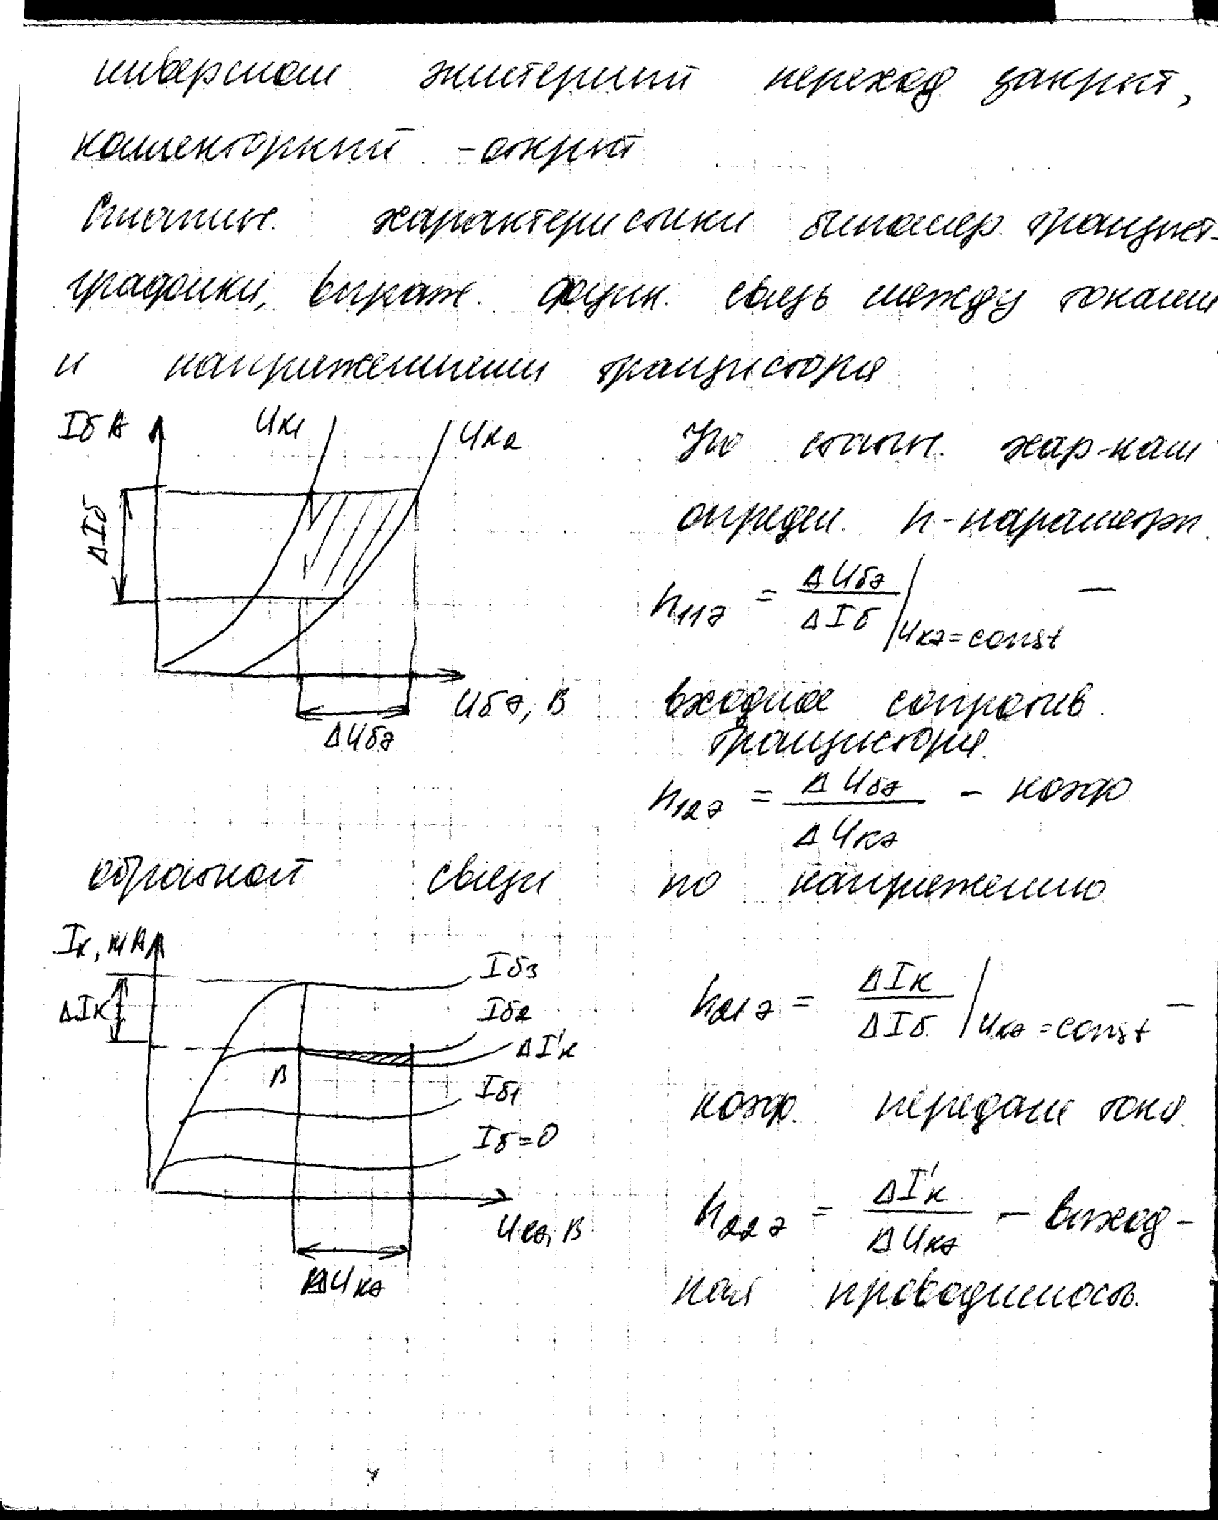 инверсном эмитерный переход закрыт,
коллекторный - открыт
Статич. характеристики биполяр. транзист-
графики, выраж. функ. связь между токами
и напряжениями транзистора
Iб А
Uк1
Uк2
ΔIб
Uбэ, В
ΔUбэ
По статич. хар-кам
определ. h-параметры.
h11э = ΔUбэ/ΔIб | Uкэ=const —
входное сопротив.
транзистора.
h12э = ΔUбэ/ΔUкэ - коэф
обратной связи по напряжению
Iк, мА
ΔIк
Iб3
Iб2
ΔI'к
В
Iб1
Iб=0
Uкэ, В
ΔUкэ
h21э = ΔIк/ΔIб. | Uкэ=const —
коэф. передачи тока.
h22э = ΔI'к/ΔUкэ - выход-
ная проводимость.